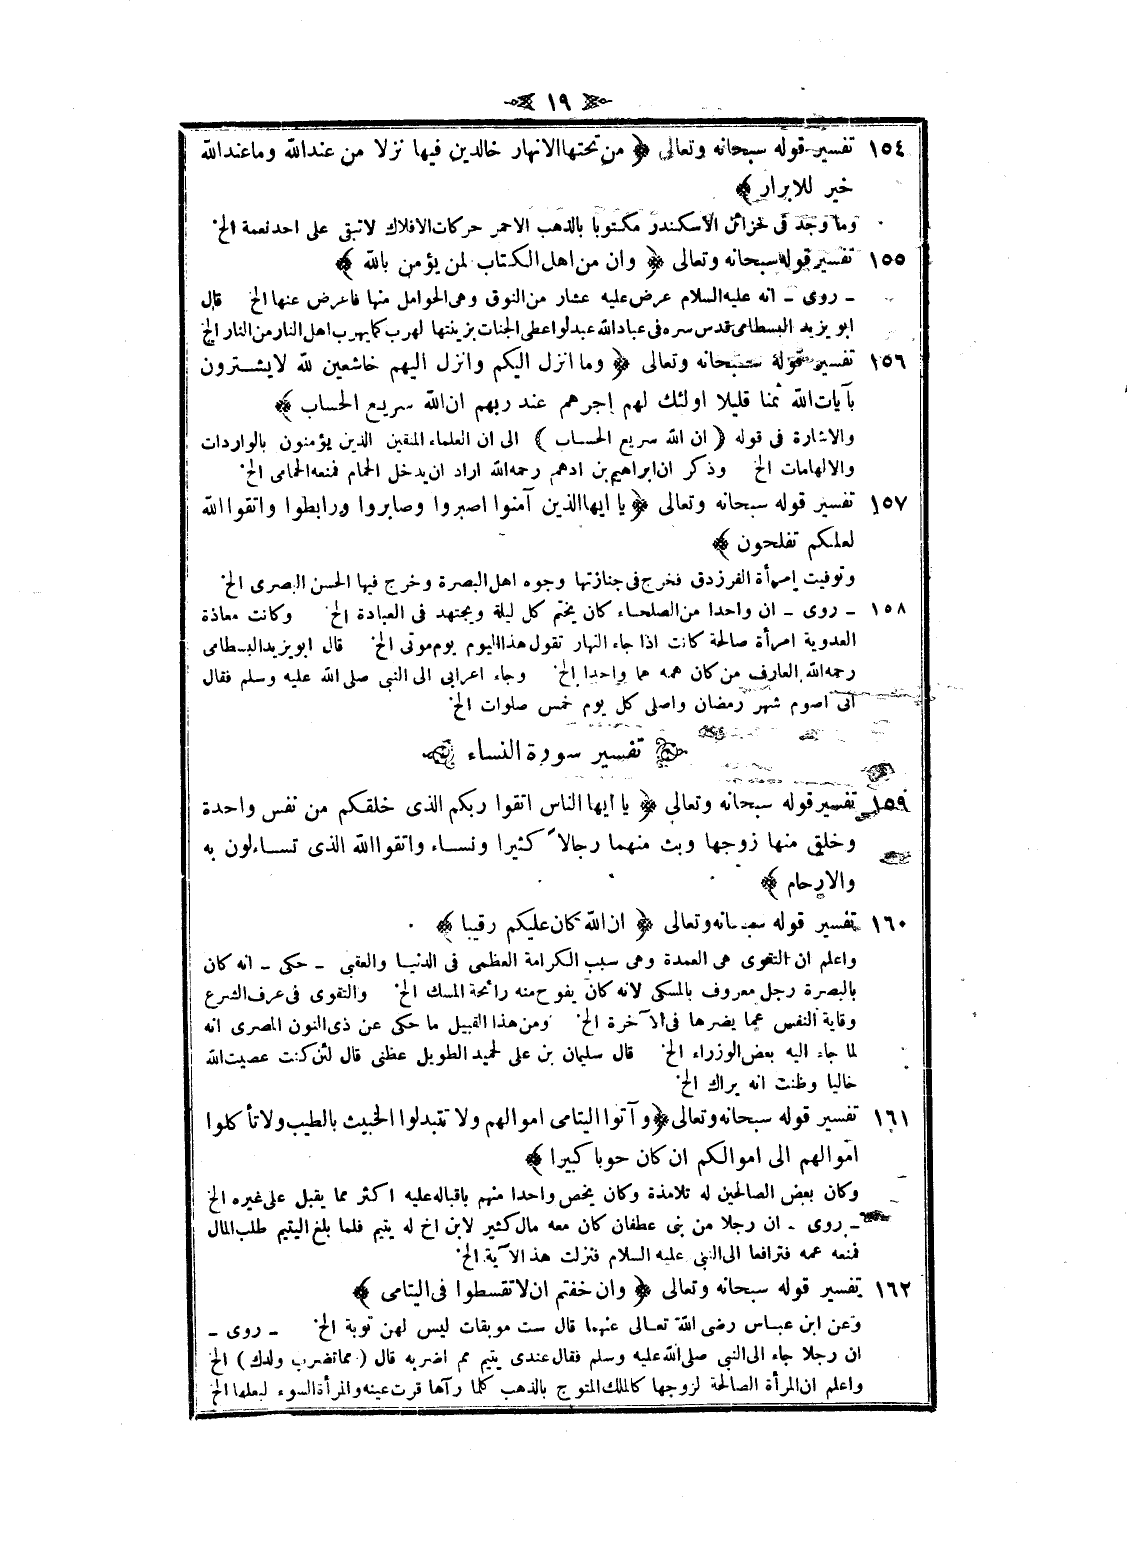 ١٩
١٥٤ تفسير قوله سبحانه وتعالى ﴿ من تحتها الانهار خالدين فيها نزلا من عند الله وما عند الله
خير للابرار ﴾
وما وجد فى خزائن الاسكندر مكتوبا بالذهب الاحمر حركات الافلاك لا تبقى على احد نعمة الخ
١٥٥ تفسير قوله سبحانه وتعالى ﴿ وان من اهل الكتاب لمن يؤمن بالله ﴾
ـ روى ـ انه عليه السلام عرض عليه عشار من النوق وهى الحوامل منها فاعرض عنها الخ قال
ابو يزيد البسطامى قدس سره فى عباد الله عبد لو اعطى الجنات بزينتها لهرب كما يهرب اهل النار من النار الخ
١٥٦ تفسير قوله سبحانه وتعالى ﴿ وما انزل اليكم وانزل اليهم خاشعين لله لا يشترون
بآيات الله ثمنا قليلا اولئك لهم اجرهم عند ربهم ان الله سريع الحساب ﴾
والاشارة فى قوله ( ان الله سريع الحساب ) الى ان العلماء المتقين الذين يؤمنون بالواردات
والالهامات الخ وذكر ان ابراهيم بن ادهم رحمه الله اراد ان يدخل الحمام فمنعه الحمامى الخ
١٥٧ تفسير قوله سبحانه وتعالى ﴿ يا ايها الذين آمنوا اصبروا وصابروا ورابطوا واتقوا الله
لعلكم تفلحون ﴾
وتوفيت امرأة الفرزدق فخرج فى جنازتها وجوه اهل البصرة وخرج فيها الحسن البصرى الخ
١٥٨ ـ روى ـ ان واحدا من الصلحاء كان يختم كل ليلة ويجتهد فى العبادة الخ وكانت معاذة
العدوية امرأة صالحة كانت اذا جاء النهار تقول هذا اليوم يوم موتى الخ قال ابو يزيد البسطامى
رحمه الله العارف من كان همه هما واحدا الخ وجاء اعرابى الى النبى صلى الله عليه وسلم فقال
انى اصوم شهر رمضان واصلى كل يوم خمس صلوات الخ
تفسير سورة النساء
١٥٩ تفسير قوله سبحانه وتعالى ﴿ يا ايها الناس اتقوا ربكم الذى خلقكم من نفس واحدة
وخلق منها زوجها وبث منهما رجالا كثيرا ونساء واتقوا الله الذى تساءلون به
والارحام ﴾
١٦٠ تفسير قوله سبحانه وتعالى ﴿ ان الله كان عليكم رقيبا ﴾
واعلم ان التقوى هى العمدة وهى سبب الكرامة العظمى فى الدنيا والعقبى ـ حكى ـ انه كان
بالبصرة رجل معروف بالمسكى لانه كان يفوح منه رائحة المسك الخ والتقوى فى عرف الشرع
وقاية النفس عما يضرها فى الآخرة الخ ومن هذا القبيل ما حكى عن ذى النون المصرى انه
لما جاء اليه بعض الوزراء الخ قال سليمان بن على لحميد الطويل عظنى قال لئن كنت عصيت الله
خاليا وظنت انه يراك الخ
١٦١ تفسير قوله سبحانه وتعالى ﴿ وآتوا اليتامى اموالهم ولا تتبدلوا الخبيث بالطيب ولا تأكلوا
اموالهم الى اموالكم ان كان حوبا كبيرا ﴾
وكان بعض الصالحين له تلامذة وكان يخص واحدا منهم باقباله عليه اكثر مما يقبل على غيره الخ
ـ روى ـ ان رجلا من بنى عطفان كان معه مال كثير لابن اخ له يتيم فلما بلغ اليتيم طلب المال
فمنعه عمه فترافعا الى النبى عليه السلام فنزلت هذا الآية الخ
١٦٢ تفسير قوله سبحانه وتعالى ﴿ وان خفتم ان لا تقسطوا فى اليتامى ﴾
وعن ابن عباس رضى الله تعالى عنهما قال ست موبقات ليس لهن توبة الخ ـ روى ـ
ان رجلا جاء الى النبى صلى الله عليه وسلم فقال عندى يتيم مم اضربه قال ( مما تضرب ولدك ) الخ
واعلم ان المرأة الصالحة لزوجها كالملك المتوج بالذهب كلما رآها قرت عينه والمرأة السوء لبعلها الخ